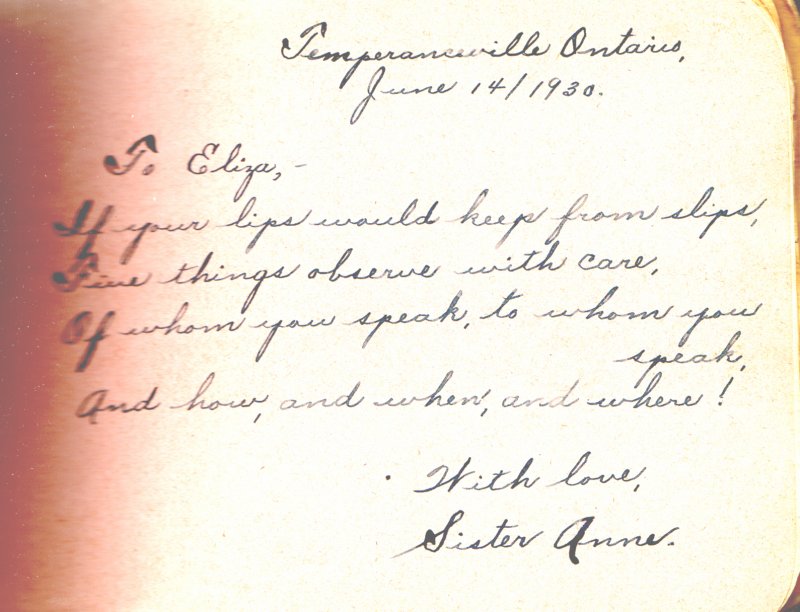 Temperanceville Ontario,
June 14/1930.
To Eliza,-
If your lips would keep from slips,
Five things observe with care,
Of whom you speak, to whom you
speak,
And how, and when, and where!
With love,
Sister Anne.